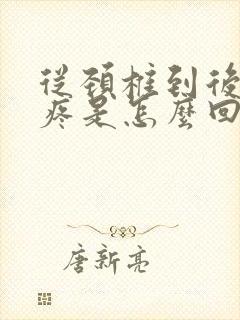 從頸椎到後
疼是怎麼回
唐新亮